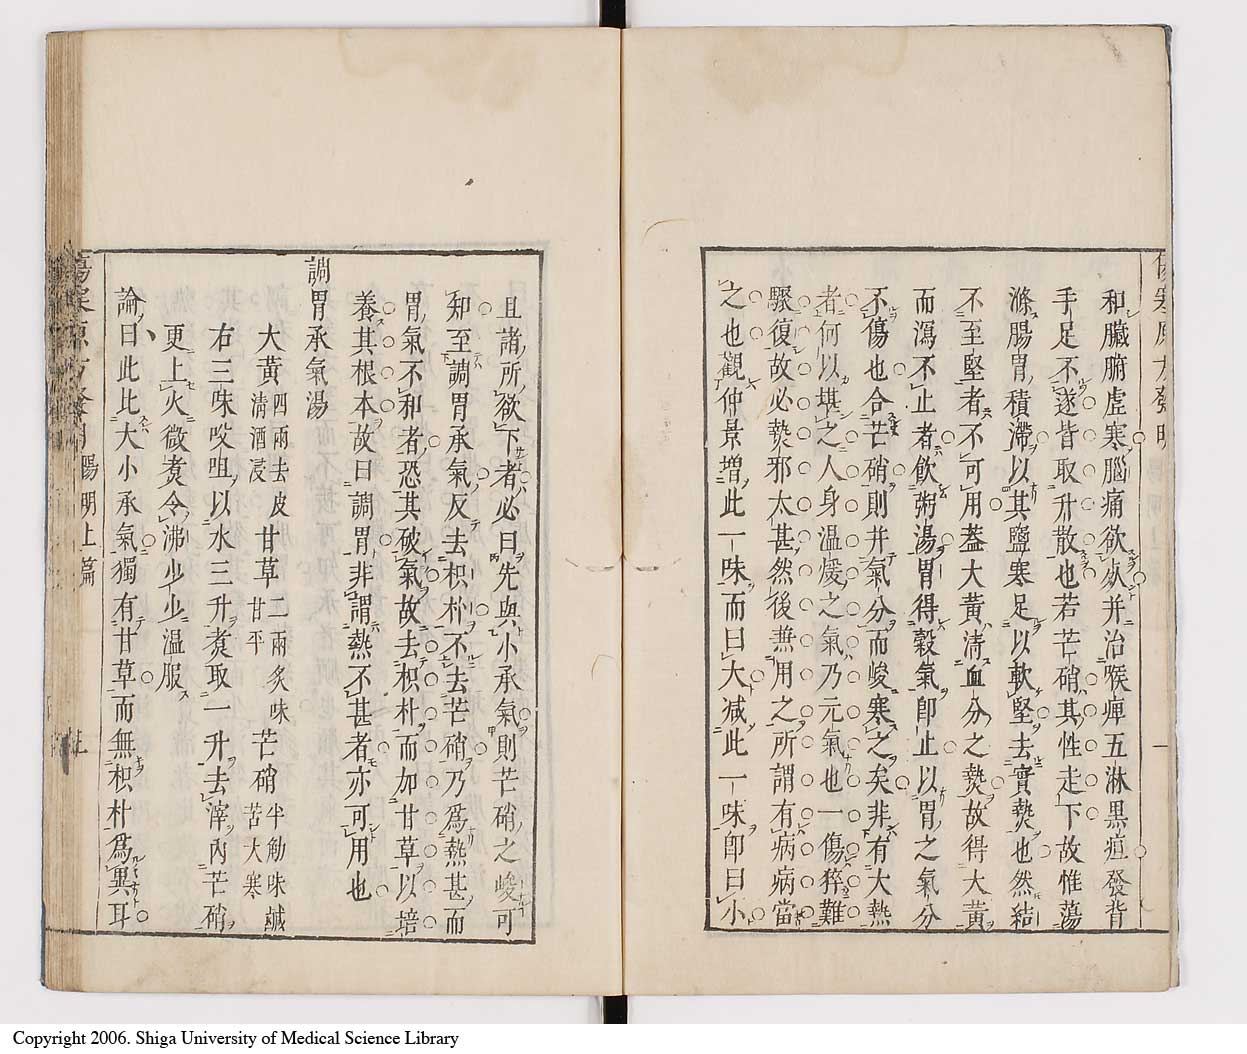 和臟腑虛寒腦痛欲𣦸并治喉痺五淋黑疸發背
手足不遂皆取升散也若芒硝其性走下故惟蕩
滌腸胃積滯以其鹽寒足以軟堅去實𤍠也然結
不至堅者不可用蓋大黃淸血分之𤍠故得大黃
而瀉不止者飮粥湯胃得穀氣卽止以胃之氣分
不傷也合芒硝則并氣分而峻寒之矣非有大熱
者何以堪之人身温煖之氣乃元氣也一傷猝難
驟復故必𤍠邪太甚然後兼用之所謂有病病當
之也觀仲景增此一味而曰大減此一味卽曰小
且諸所欲下者必曰先與小承氣則芒硝之峻可
知至調胃承氣反去枳朴不去芒硝乃爲熱甚而
胃氣不和者恐其破氣故去枳朴而加甘草以培
養其根本故曰調胃非謂熱不甚者亦可用也
調胃承氣湯
大黃四兩去皮淸酒浸 甘草二兩炙味甘平 芒硝半觔味鹹苦大寒
右三味㕮咀以水三升煮取一升去滓內芒硝
更上火微煮令沸少少温服
論曰此比大小承氣獨有甘草而無枳朴爲異耳
陽明上篇
Copyright 2006. Shiga University of Medical Science Library